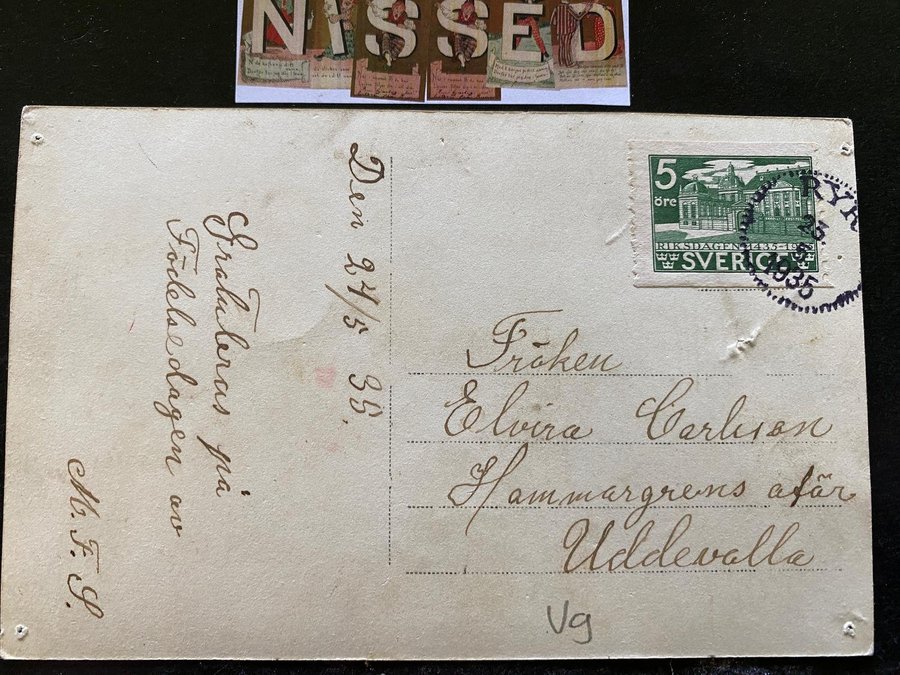 NISSED
5
öre
RIKSDAGEN 1435-19
SVERIGE
RYR
23.
5
1935
Den 24/5 35.
Gratuleras på
Födelsedagen av
M. F. S.
Fröken
Elvira Carlsson
Hammargrens afär
Uddevalla
Vg